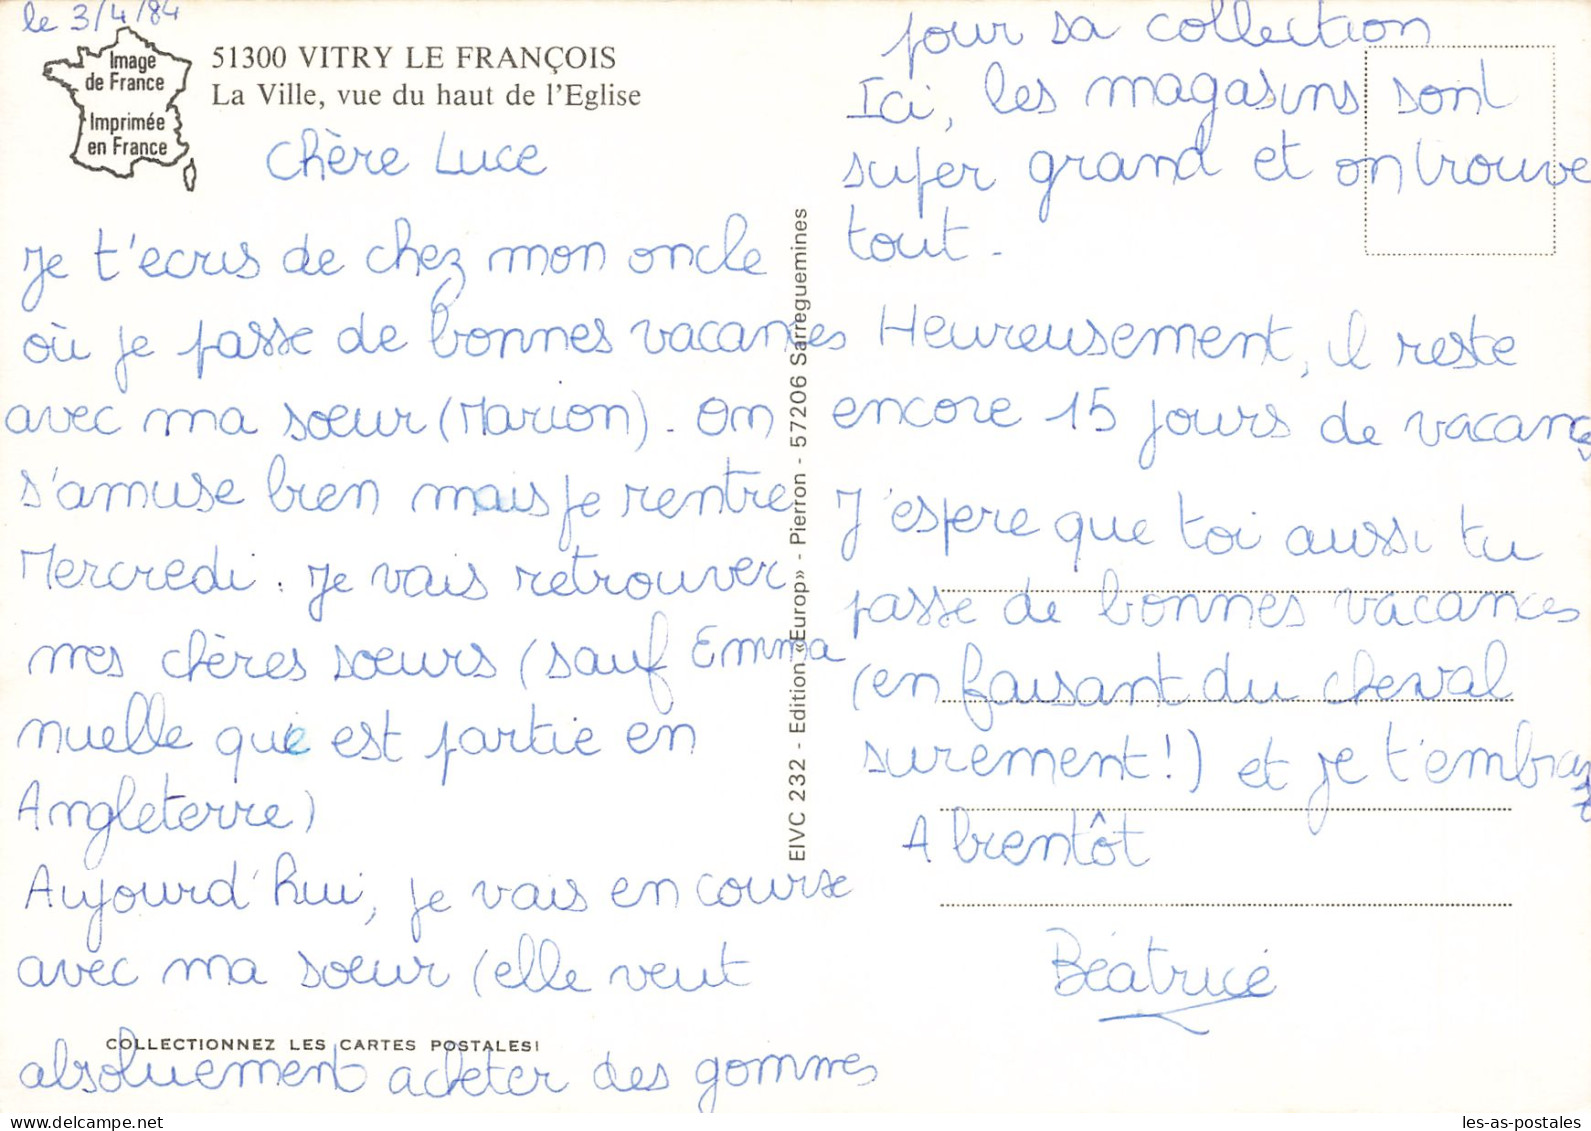 le 3/4/84
Image
de France
Imprimée
en France
51300 VITRY LE FRANÇOIS
La Ville, vue du haut de l'Eglise
Chère Luce
Je t'ecris de chez mon oncle
où je passe de bonnes vacances
avec ma sœur (Marion). On
s'amuse bien mais je rentre
Mercredi : Je vais retrouver
mes chères sœurs (sauf Emma
nuelle qui est partie en
Angleterre)
Aujourd'hui, je vais en course
avec ma sœur (elle veut
absoluement acheter des gommes
COLLECTIONNEZ LES CARTES POSTALES!
EIVC 232 - Edition «Europ» - Pierron - 57206 Sarreguemines
pour sa collection
Ici, les magasins sont
super grand et on trouve
tout.
Heureusement, il reste
encore 15 jours de vacances
J'espere que toi aussi tu
passe de bonnes vacances
(en faisant du cheval
surement!) et je t'embrasse
A bientôt
Béatrice
les-as-postales